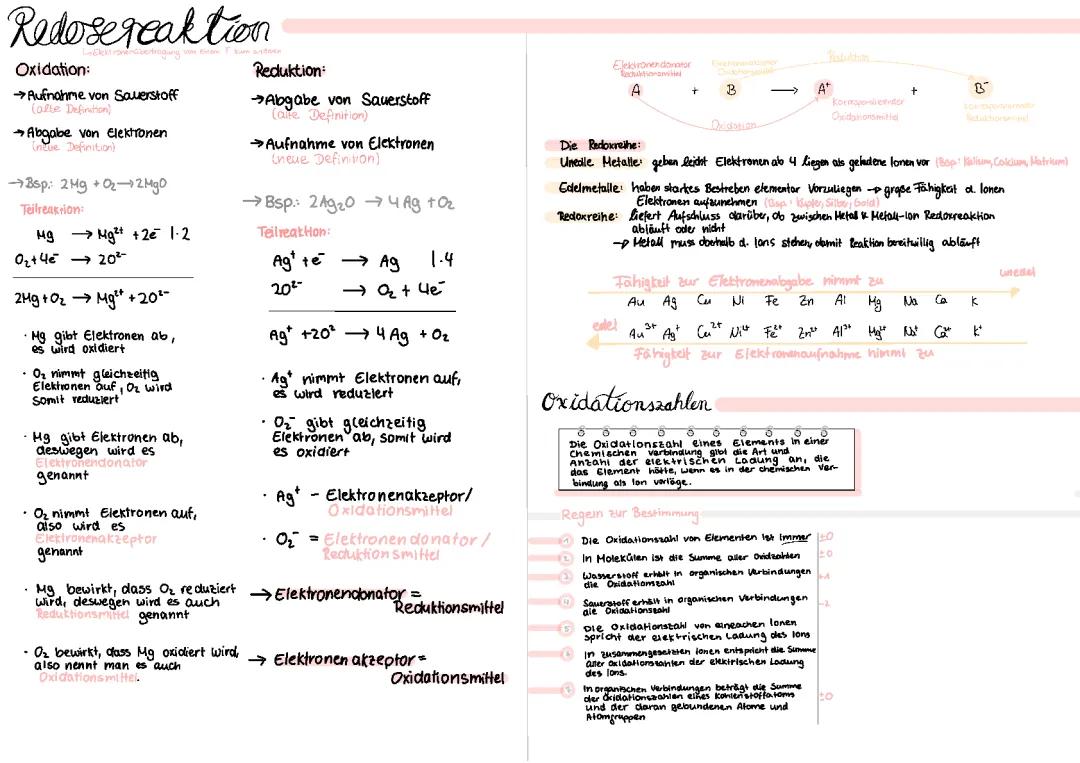 Redoxereaktion
↳Elektronenübertragung von einem T zum anderen
Oxidation:
→Aufnahme von Sauerstoff
(alte Definition)
→Abgabe von Elektronen
(neue Definition)
→Bsp.: 2Mg + O₂ → 2MgO
Teilreaktion:
Mg → Mg²⁺ + 2e⁻ |·2
O₂ + 4e⁻ → 2O²⁻
2Mg + O₂ → Mg²⁺ + 2O²⁻
· Mg gibt Elektronen ab,
es wird oxidiert
· O₂ nimmt gleichzeitig
Elektronen auf, O₂ wird
somit reduziert
· Mg gibt Elektronen ab,
deswegen wird es
Elektronendonator
genannt
· O₂ nimmt Elektronen auf,
also wird es
Elektronenakzeptor
genannt
· Mg bewirkt, dass O₂ reduziert
wird, deswegen wird es auch
Reduktionsmittel genannt
· O₂ bewirkt, dass Mg oxidiert wird,
also nennt man es auch
Oxidationsmittel.
Reduktion:
→Abgabe von Sauerstoff
(alte Definition)
→Aufnahme von Elektronen
(neue Definition)
→Bsp.: 2Ag₂O → 4Ag + O₂
Teilreaktion:
Ag⁺ + e⁻ → Ag |·4
2O²⁻ → O₂ + 4e⁻
Ag⁺ + 2O² → 4Ag + O₂
· Ag⁺ nimmt Elektronen auf,
es wird reduziert
· O₂⁻ gibt gleichzeitig
Elektronen ab, somit wird
es oxidiert
· Ag⁺ – Elektronenakzeptor/
Oxidationsmittel
· O₂⁻ = Elektronendonator/
Reduktionsmittel
→Elektronendonator =
Reduktionsmittel
→ Elektronenakzeptor =
Oxidationsmittel
Reduktion
Elektronendonator Elektronenakzeptor
Reduktionsmittel Oxidationsmittel
A + B → A⁺ + B⁻
Korrespondierender Korrespondierender
Oxidationsmittel Reduktionsmittel
Oxidation
Die Redoxreihe:
Unedle Metalle: geben leicht Elektronen ab & liegen als geladene Ionen vor (Bsp.: Kalium, Calcium, Natrium)
Edelmetalle: haben starkes Bestreben elementar vorzuliegen → große Fähigkeit d. Ionen
Elektronen aufzunehmen (Bsp.: Kupfer, Silber, Gold)
Redoxreihe: liefert Aufschluss darüber, ob zwischen Metall & Metall-Ion Redoxreaktion
abläuft oder nicht
→ Metall muss oberhalb d. Ions stehen, damit Reaktion bereitwillig abläuft
unedel
Fähigkeit zur Elektronenabgabe nimmt zu
Au Ag Cu Ni Fe Zn Al Mg Na Ca K
edel
Au³⁺ Ag⁺ Cu²⁺ Ni²⁺ Fe²⁺ Zn²⁺ Al³⁺ Mg²⁺ Na⁺ Ca²⁺ K⁺
Fähigkeit zur Elektronenaufnahme nimmt zu
Oxidationszahlen
Die Oxidationszahl eines Elements in einer
chemischen Verbindung gibt die Art und
Anzahl der elektrischen Ladung an, die
das Element hätte, wenn es in der chemischen Ver-
bindung als Ion vorläge.
Regeln zur Bestimmung
1 Die Oxidationszahl von Elementen ist immer ±0
2 In Molekülen ist die Summe aller Oxidzahlen ±0
3 Wasserstoff erhält in organischen Verbindungen
die Oxidationszahl +1
4 Sauerstoff erhält in organischen Verbindungen
die Oxidationszahl -2
5 Die Oxidationszahl von einfachen Ionen
spricht der elektrischen Ladung des Ions
6 In zusammengesetzten Ionen entspricht die Summe
aller Oxidationszahlen der elektrischen Ladung
des Ions.
7 In organischen Verbindungen beträgt die Summe
der Oxidationszahlen eines Kohlenstoffatoms ±0
und der daran gebundenen Atome und
Atomgruppen